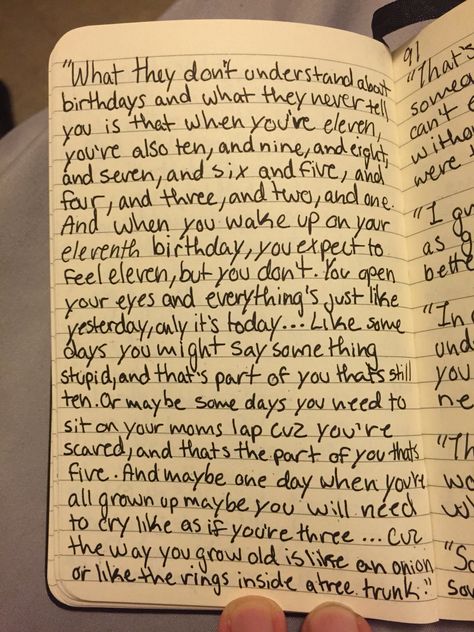 "What they don't understand about
birthdays and what they never tell
you is that when you're eleven,
you're also ten, and nine, and eight,
and seven, and six and five, and
four, and three, and two, and one.
And when you wake up on your
eleventh birthday, you expect to
feel eleven, but you don't. You open
your eyes and everything's just like
yesterday, only it's today... Like some
days you might say something
stupid, and that's part of you that's still
ten. Or maybe some days you need to
sit on your moms lap cuz you're
scared, and thats the part of you thats
five. And maybe one day when you're
all grown up maybe you will need
to cry like as if you're three ... cuz
the way you grow old is like an onion
or like the rings inside a tree trunk."
91
"That's
someo
can't
witho
were
"I
as
bette
"In
und
you
ne
"Th
wo
"So
sou